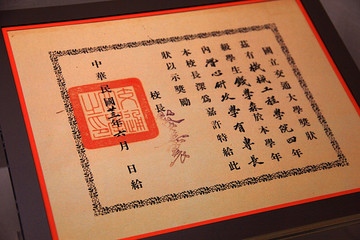 國立交通大學獎狀
茲有機械工程學院四年
級學生錢學森於本學年
內潛心研攻學有專長
本校長深為嘉許特給此
狀以示獎勵
校長
中華民國三年六月 日給